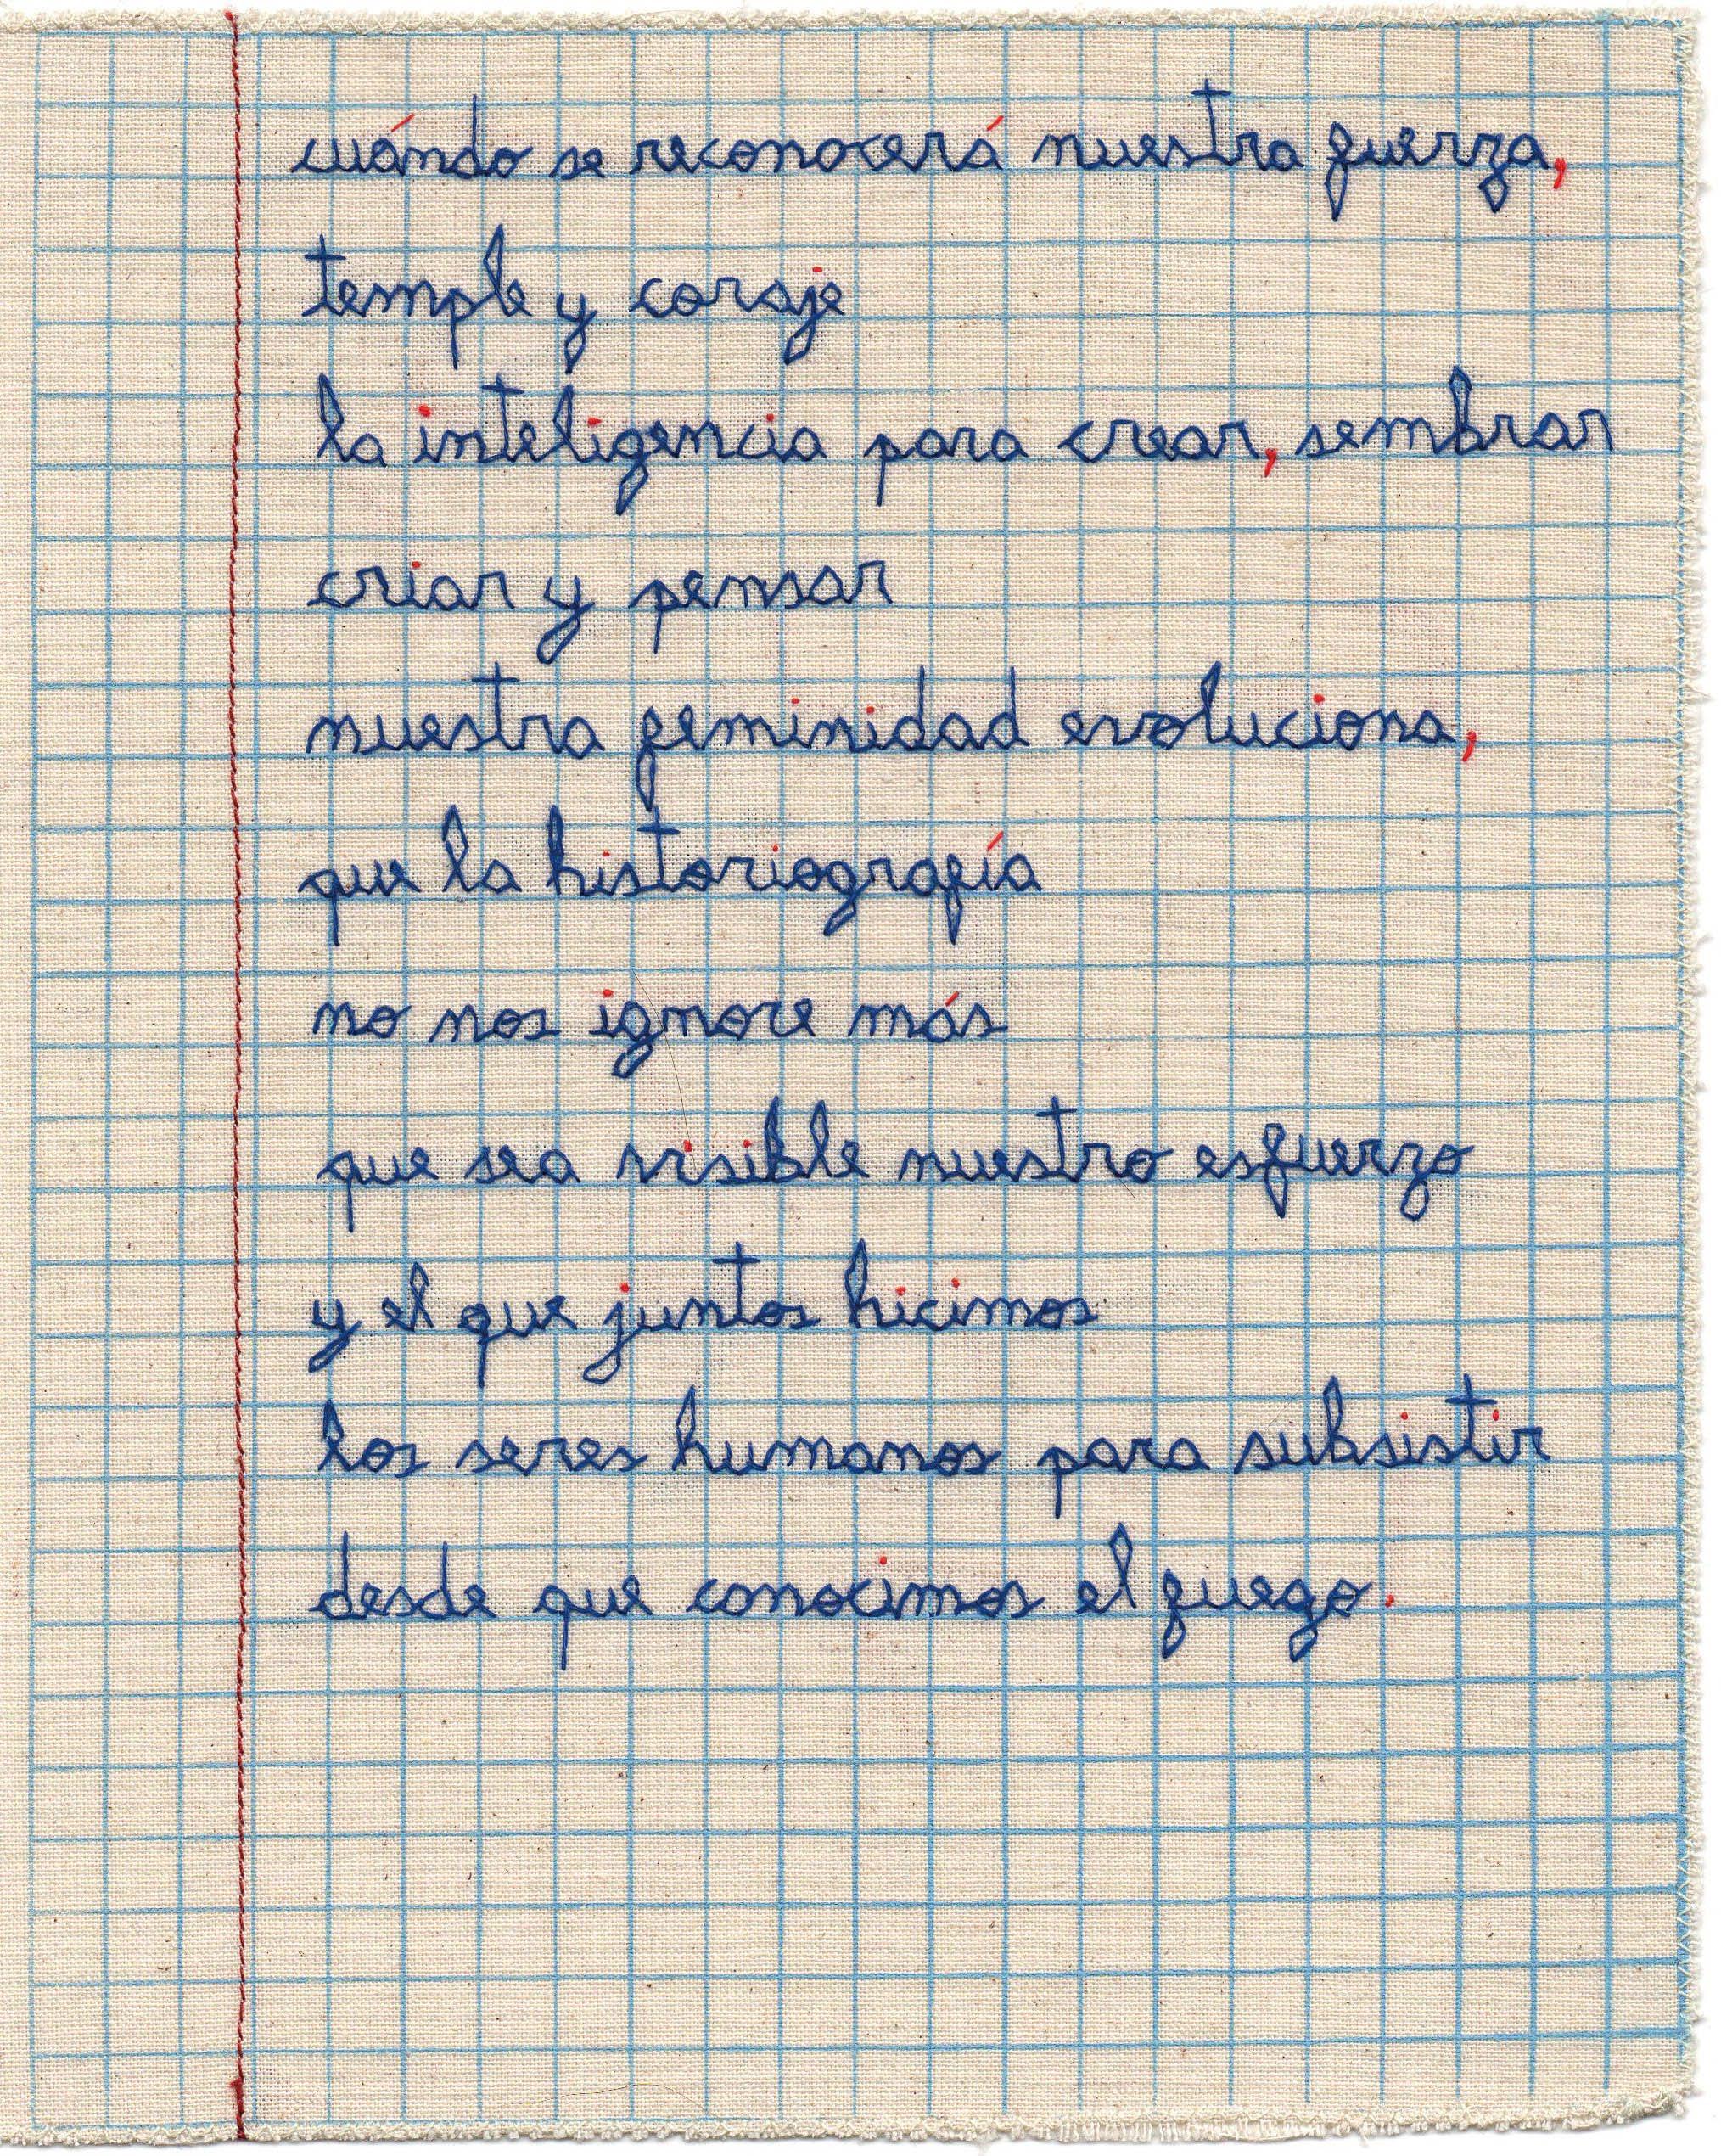 cuándo se reconocerá nuestra fuerza,
temple y coraje
la inteligencia para crear, sembrar
criar y pensar
nuestra feminidad evoluciona,
que la historiografía
no nos ignore más
que sea visible nuestro esfuerzo
y el que juntos hicimos
los seres humanos para subsistir
desde que conocimos el fuego.